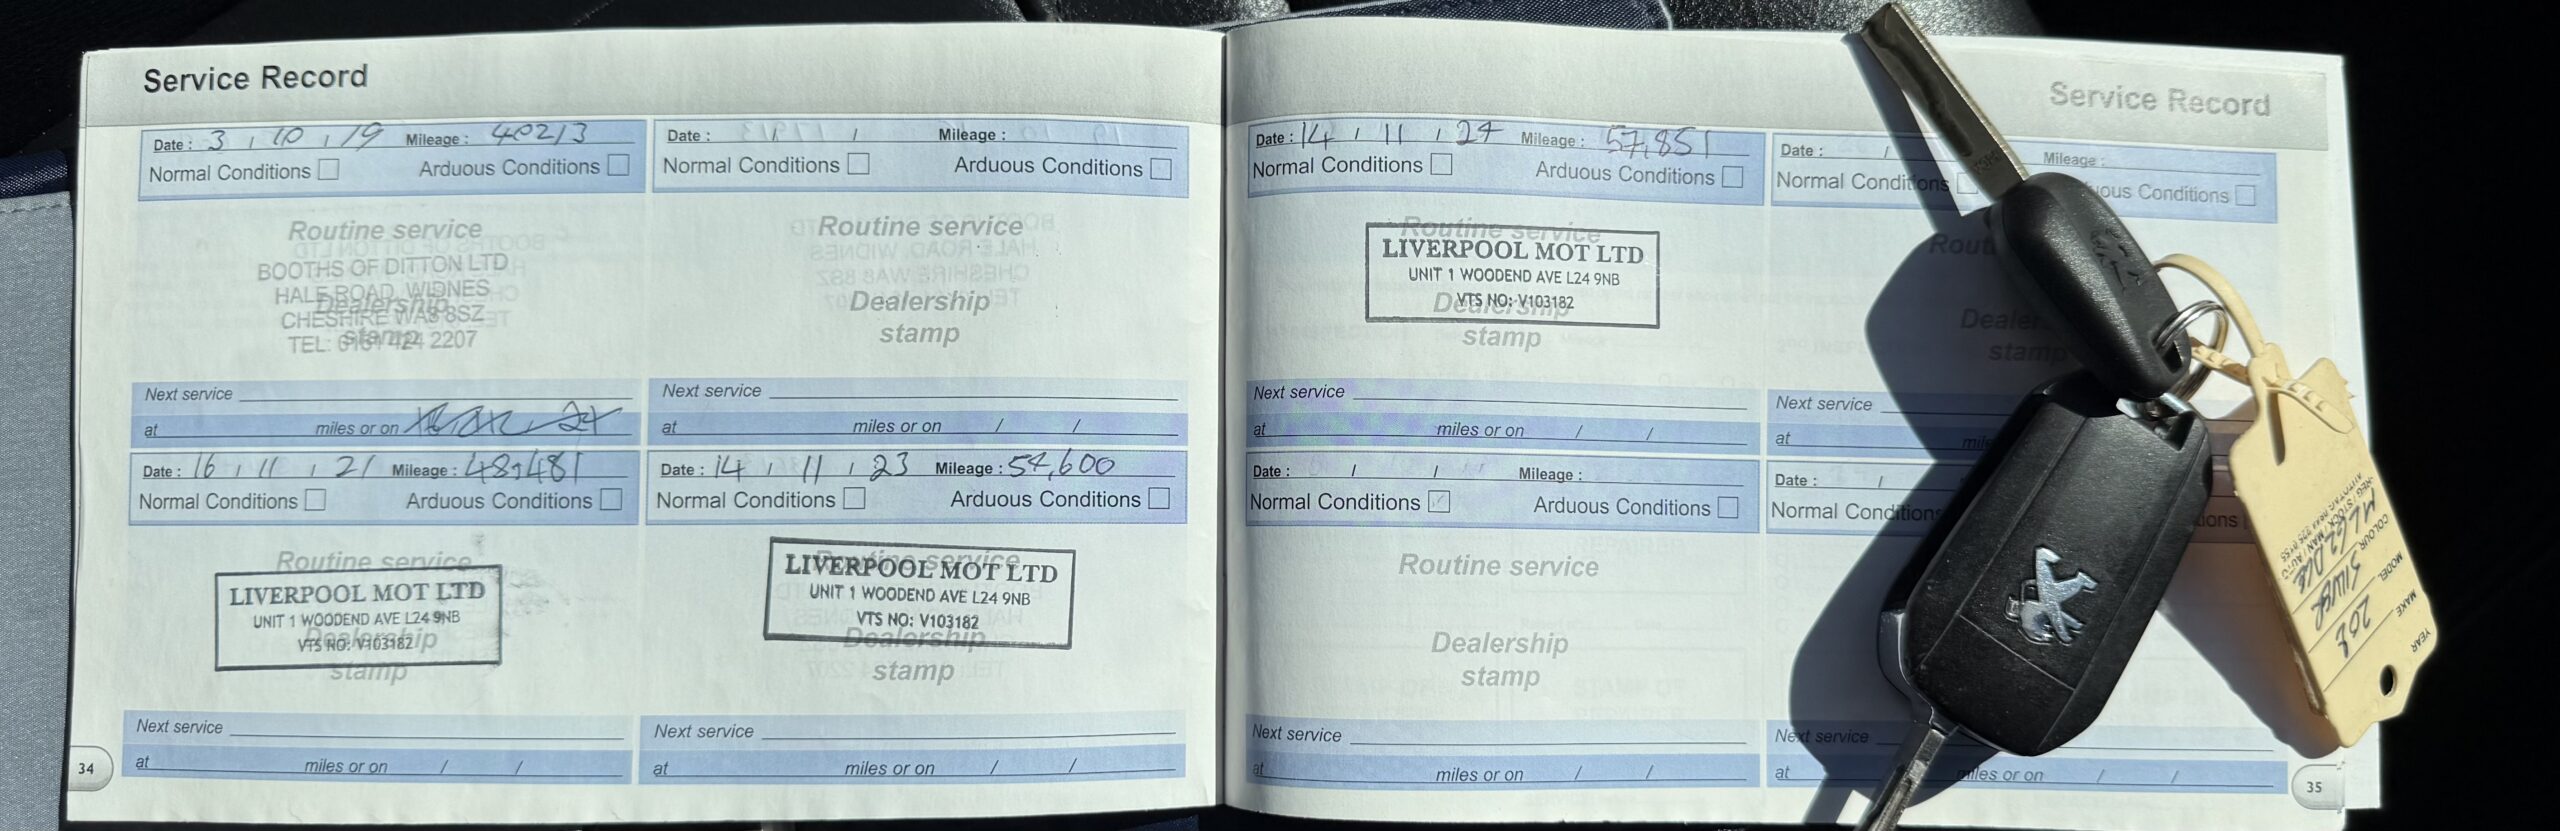 Service Record
Date : 3 / 10 / 19 Mileage : 40213
Normal Conditions Arduous Conditions
Routine service
BOOTHS OF DITTON LTD
HALE ROAD, WIDNES
Dealership
CHESHIRE WA8 8SZ
stamp
TEL: 0151 424 2207
Next service
at miles or on
Date : / / Mileage :
Normal Conditions Arduous Conditions
Routine service
Dealership
stamp
Next service
at miles or on / /
Date : 16 / 11 / 21 Mileage : 48,481
Normal Conditions Arduous Conditions
Routine service
LIVERPOOL MOT LTD
UNIT 1 WOODEND AVE L24 9NB
Dealership
VTS NO: V103182
stamp
Next service
at miles or on / /
Date : 14 / 11 / 23 Mileage : 54,600
Normal Conditions Arduous Conditions
Routine service
LIVERPOOL MOT LTD
UNIT 1 WOODEND AVE L24 9NB
VTS NO: V103182
Dealership
stamp
Next service
at miles or on / /
34
Service Record
Date : 14 / 11 / 24 Mileage : 57,851
Normal Conditions Arduous Conditions
Routine service
LIVERPOOL MOT LTD
UNIT 1 WOODEND AVE L24 9NB
VTS NO: V103182
Dealership
stamp
Next service
at miles or on / /
Date : / Mileage :
Normal Conditions uous Conditions
Rout
Dealer
stamp
Next service
at mile
Date : / / Mileage :
Normal Conditions Arduous Conditions
Routine service
Dealership
stamp
Next service
at miles or on / /
Date : /
Normal Conditions ions
Next service
at miles or on / /
35
YEAR
MAKE
208
MODEL
SILVER
COLOUR
MAN / AUTO
REG / STOCK